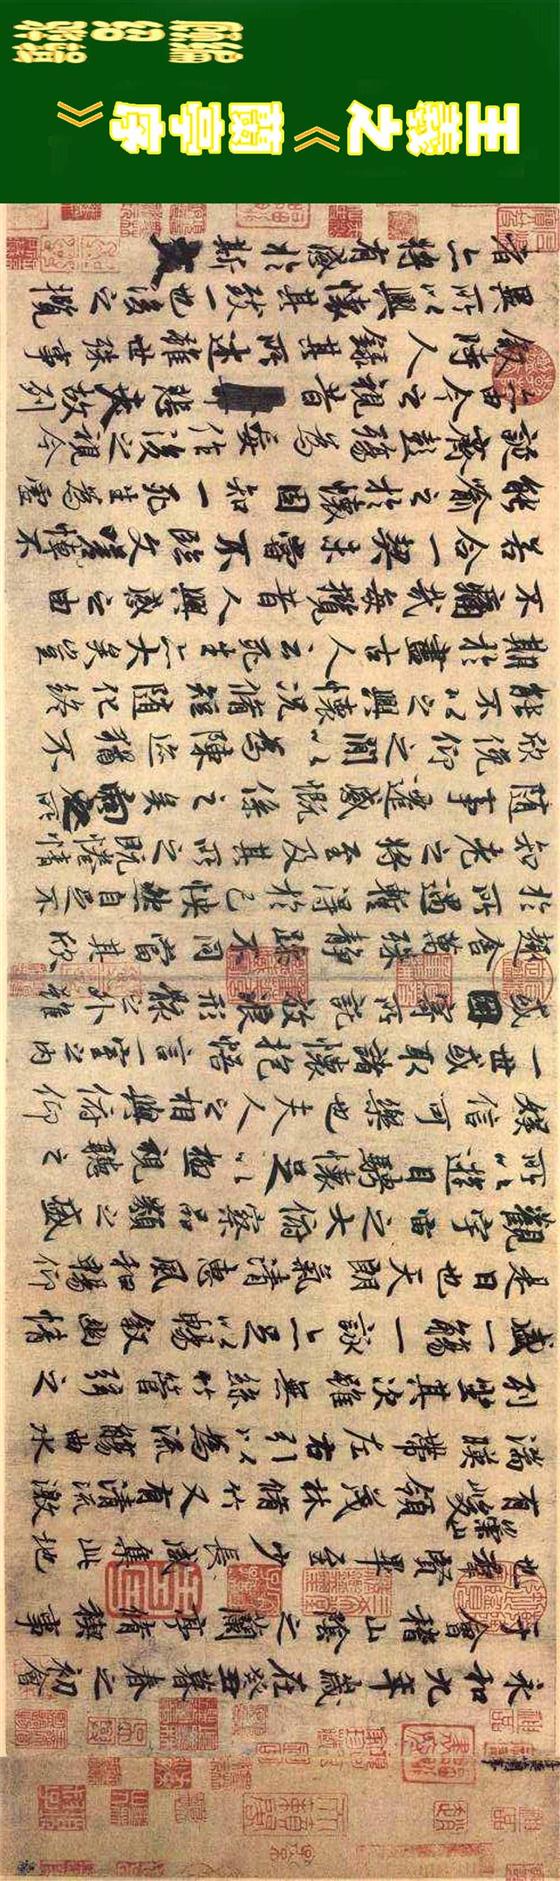 王羲之《蘭亭序》
永和九年歲在癸丑暮春之初會
于會稽山陰之蘭亭脩稧事
也羣賢畢至少長咸集此地
有崇山峻領茂林脩竹又有清流激
湍暎帶左右引以為流觴曲水
列坐其次雖無絲竹管弦之
盛一觴一詠亦足以暢叙幽情
是日也天朗氣清惠風和暢仰
觀宇宙之大俯察品類之盛
所以遊目騁懷足以極視聽之
娛信可樂也夫人之相與俯仰
一世或取諸懷抱悟言一室之內
或因寄所託放浪形骸之外雖
趣舍萬殊靜躁不同當其欣
於所遇暫得於己怏然自足不
知老之將至及其所之既惓情
隨事遷感慨係之矣向之所
欣俛仰之閒以為陳迹猶不
能不以之興懷況脩短隨化終
期於盡古人云死生亦大矣豈
不痛哉每攬昔人興感之由
若合一契未嘗不臨文嗟悼不
能喻之於懷固知一死生為虛
誕齊彭殤為妄作後之視今
亦由今之視昔悲夫故列
叙時人錄其所述雖世殊事
異所以興懷其致一也後之攬
者亦將有感於斯文